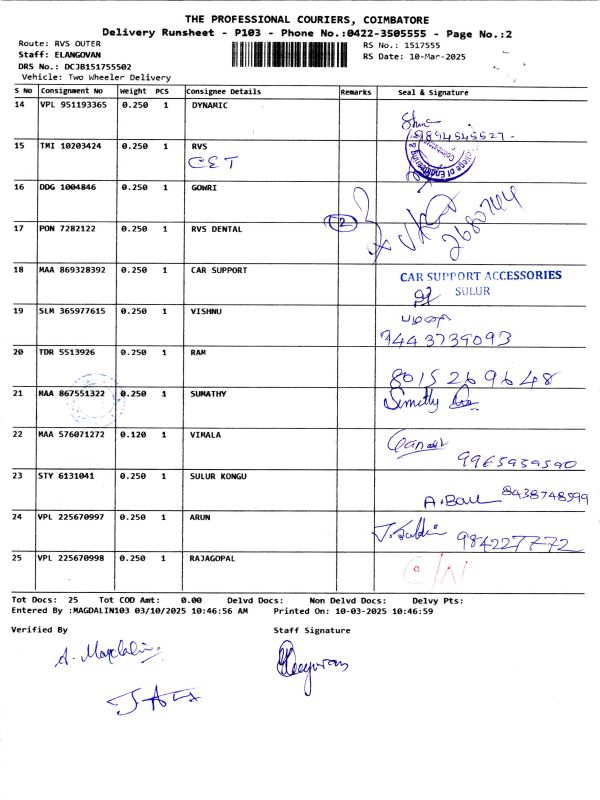 THE PROFESSIONAL COURIERS, COIMBATORE
Delivery Runsheet - P103 - Phone No.:0422-3505555 - Page No.:2
Route: RVS OUTER
RS No.: 1517555
Staff: ELANGOVAN
RS Date: 10-Mar-2025
DRS No.: DCJB151755502
Vehicle: Two Wheeler Delivery
S No Consignment No Weight PCS Consignee Details Remarks Seal & Signature
14 VPL 951193365 0.250 1 DYNAMIC
9894545527
15 TMI 10203424 0.250 1 RVS
CET
College of Engineering
Coimbatore
16 DDG 1004846 0.250 1 GOWRI
17 PON 7282122 0.250 1 RVS DENTAL
2
2680744
18 MAA 869328392 0.250 1 CAR SUPPORT
CAR SUPPORT ACCESSORIES
SULUR
19 SLM 365977615 0.250 1 VISHNU
9443739093
20 TDR 5513926 0.250 1 RAM
8015269648
21 MAA 867551322 0.250 1 SUMATHY
Sumathy
22 MAA 576071272 0.120 1 VIMALA
9965959590
23 STY 6131041 0.250 1 SULUR KONGU
8438748599
24 VPL 225670997 0.250 1 ARUN
984227772
25 VPL 225670998 0.250 1 RAJAGOPAL
C/N
Tot Docs: 25 Tot COD Amt: 0.00 Delvd Docs: Non Delvd Docs: Delvy Pts:
Entered By :MAGDALIN103 03/10/2025 10:46:56 AM Printed On: 10-03-2025 10:46:59
Verified By Staff Signature
A. Magdalin